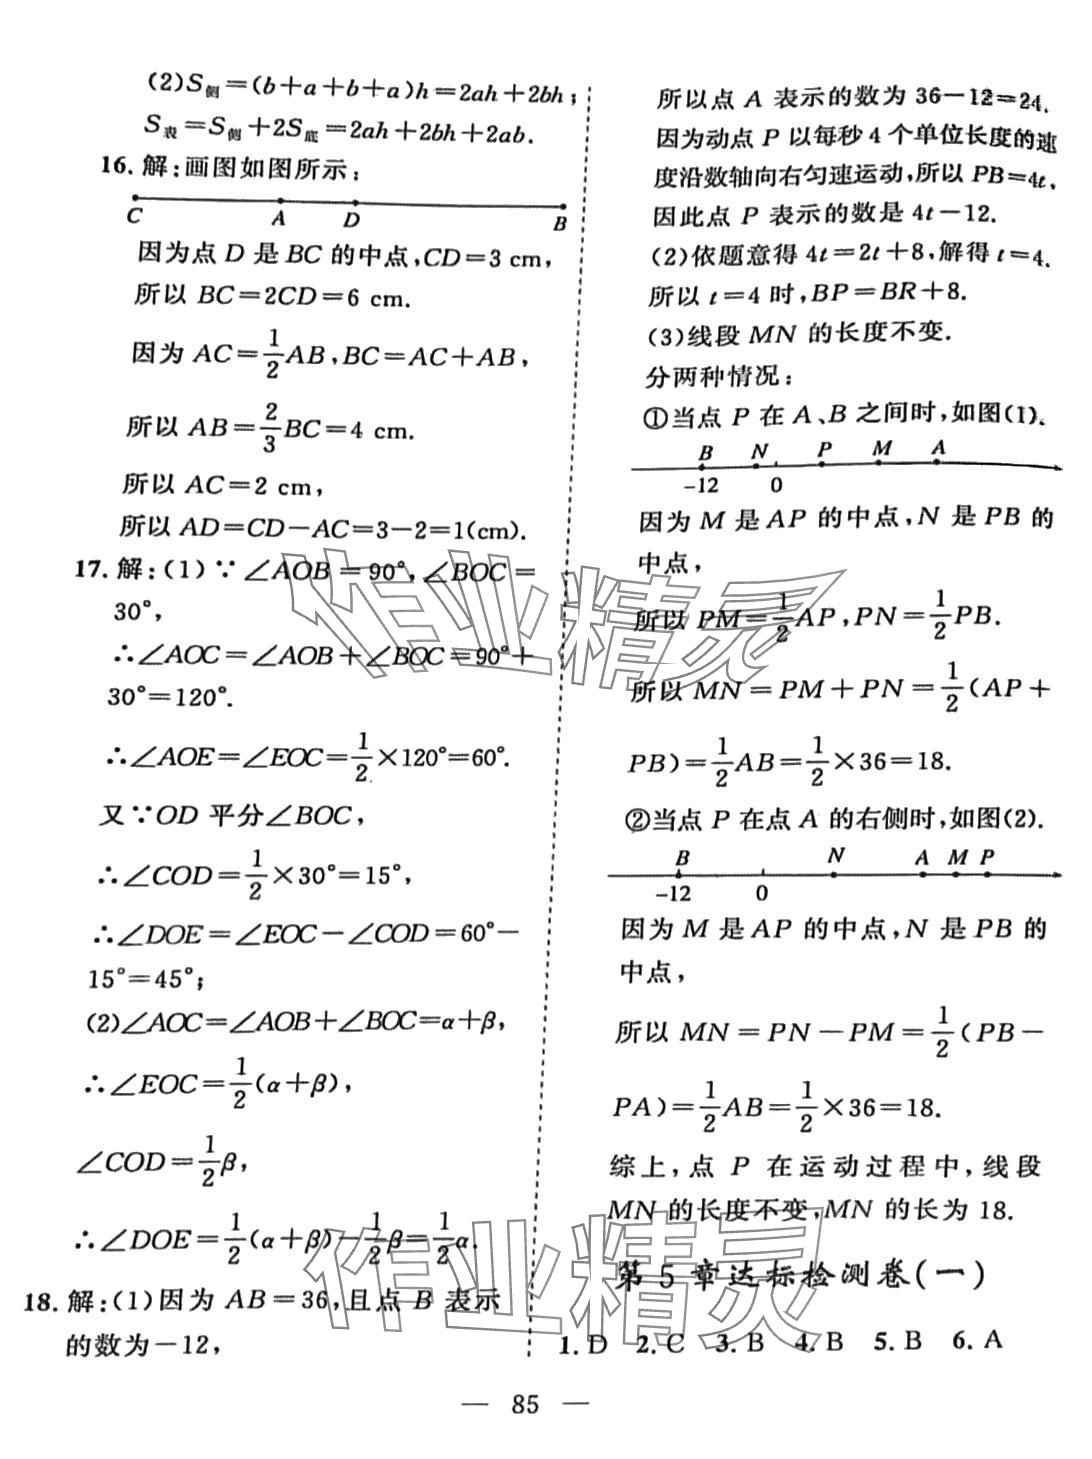 (2)S侧=(b+a+b+a)h=2ah+2bh;
S表=S侧+2S底=2ah+2bh+2ab.
16.解:画图如图所示:
C A D B
因为点 D 是 BC 的中点,CD=3 cm,
所以 BC=2CD=6 cm.
因为 AC=1/2AB,BC=AC+AB,
所以 AB=2/3BC=4 cm.
所以 AC=2 cm,
所以 AD=CD-AC=3-2=1(cm).
17.解:(1)∵∠AOB=90°,∠BOC=
30°,
∴∠AOC=∠AOB+∠BOC=90°+
30°=120°.
∴∠AOE=∠EOC=1/2×120°=60°.
又∵OD 平分∠BOC,
∴∠COD=1/2×30°=15°,
∴∠DOE=∠EOC-∠COD=60°-
15°=45°;
(2)∠AOC=∠AOB+∠BOC=α+β,
∴∠EOC=1/2(α+β),
∠COD=1/2β,
∴∠DOE=1/2(α+β)-1/2β=1/2α.
18.解:(1)因为 AB=36,且点 B 表示
的数为-12,
所以点 A 表示的数为 36-12=24.
因为动点 P 以每秒 4 个单位长度的速
度沿数轴向右匀速运动,所以 PB=4t,
因此点 P 表示的数是 4t-12.
(2)依题意得 4t=2t+8,解得 t=4.
所以 t=4 时,BP=BR+8.
(3)线段 MN 的长度不变.
分两种情况:
①当点 P 在 A、B 之间时,如图(1).
B N P M A
-12 0
因为 M 是 AP 的中点,N 是 PB 的
中点,
所以 PM=1/2AP,PN=1/2PB.
所以 MN=PM+PN=1/2(AP+
PB)=1/2AB=1/2×36=18.
②当点 P 在点 A 的右侧时,如图(2).
B N A M P
-12 0
因为 M 是 AP 的中点,N 是 PB 的
中点,
所以 MN=PN-PM=1/2(PB-
PA)=1/2AB=1/2×36=18.
综上,点 P 在运动过程中,线段
MN 的长度不变,MN 的长为 18.
第 5 章达标检测卷(一)
1.D 2.C 3.B 4.B 5.B 6.A
— 85 —
作业精灵
作业精灵